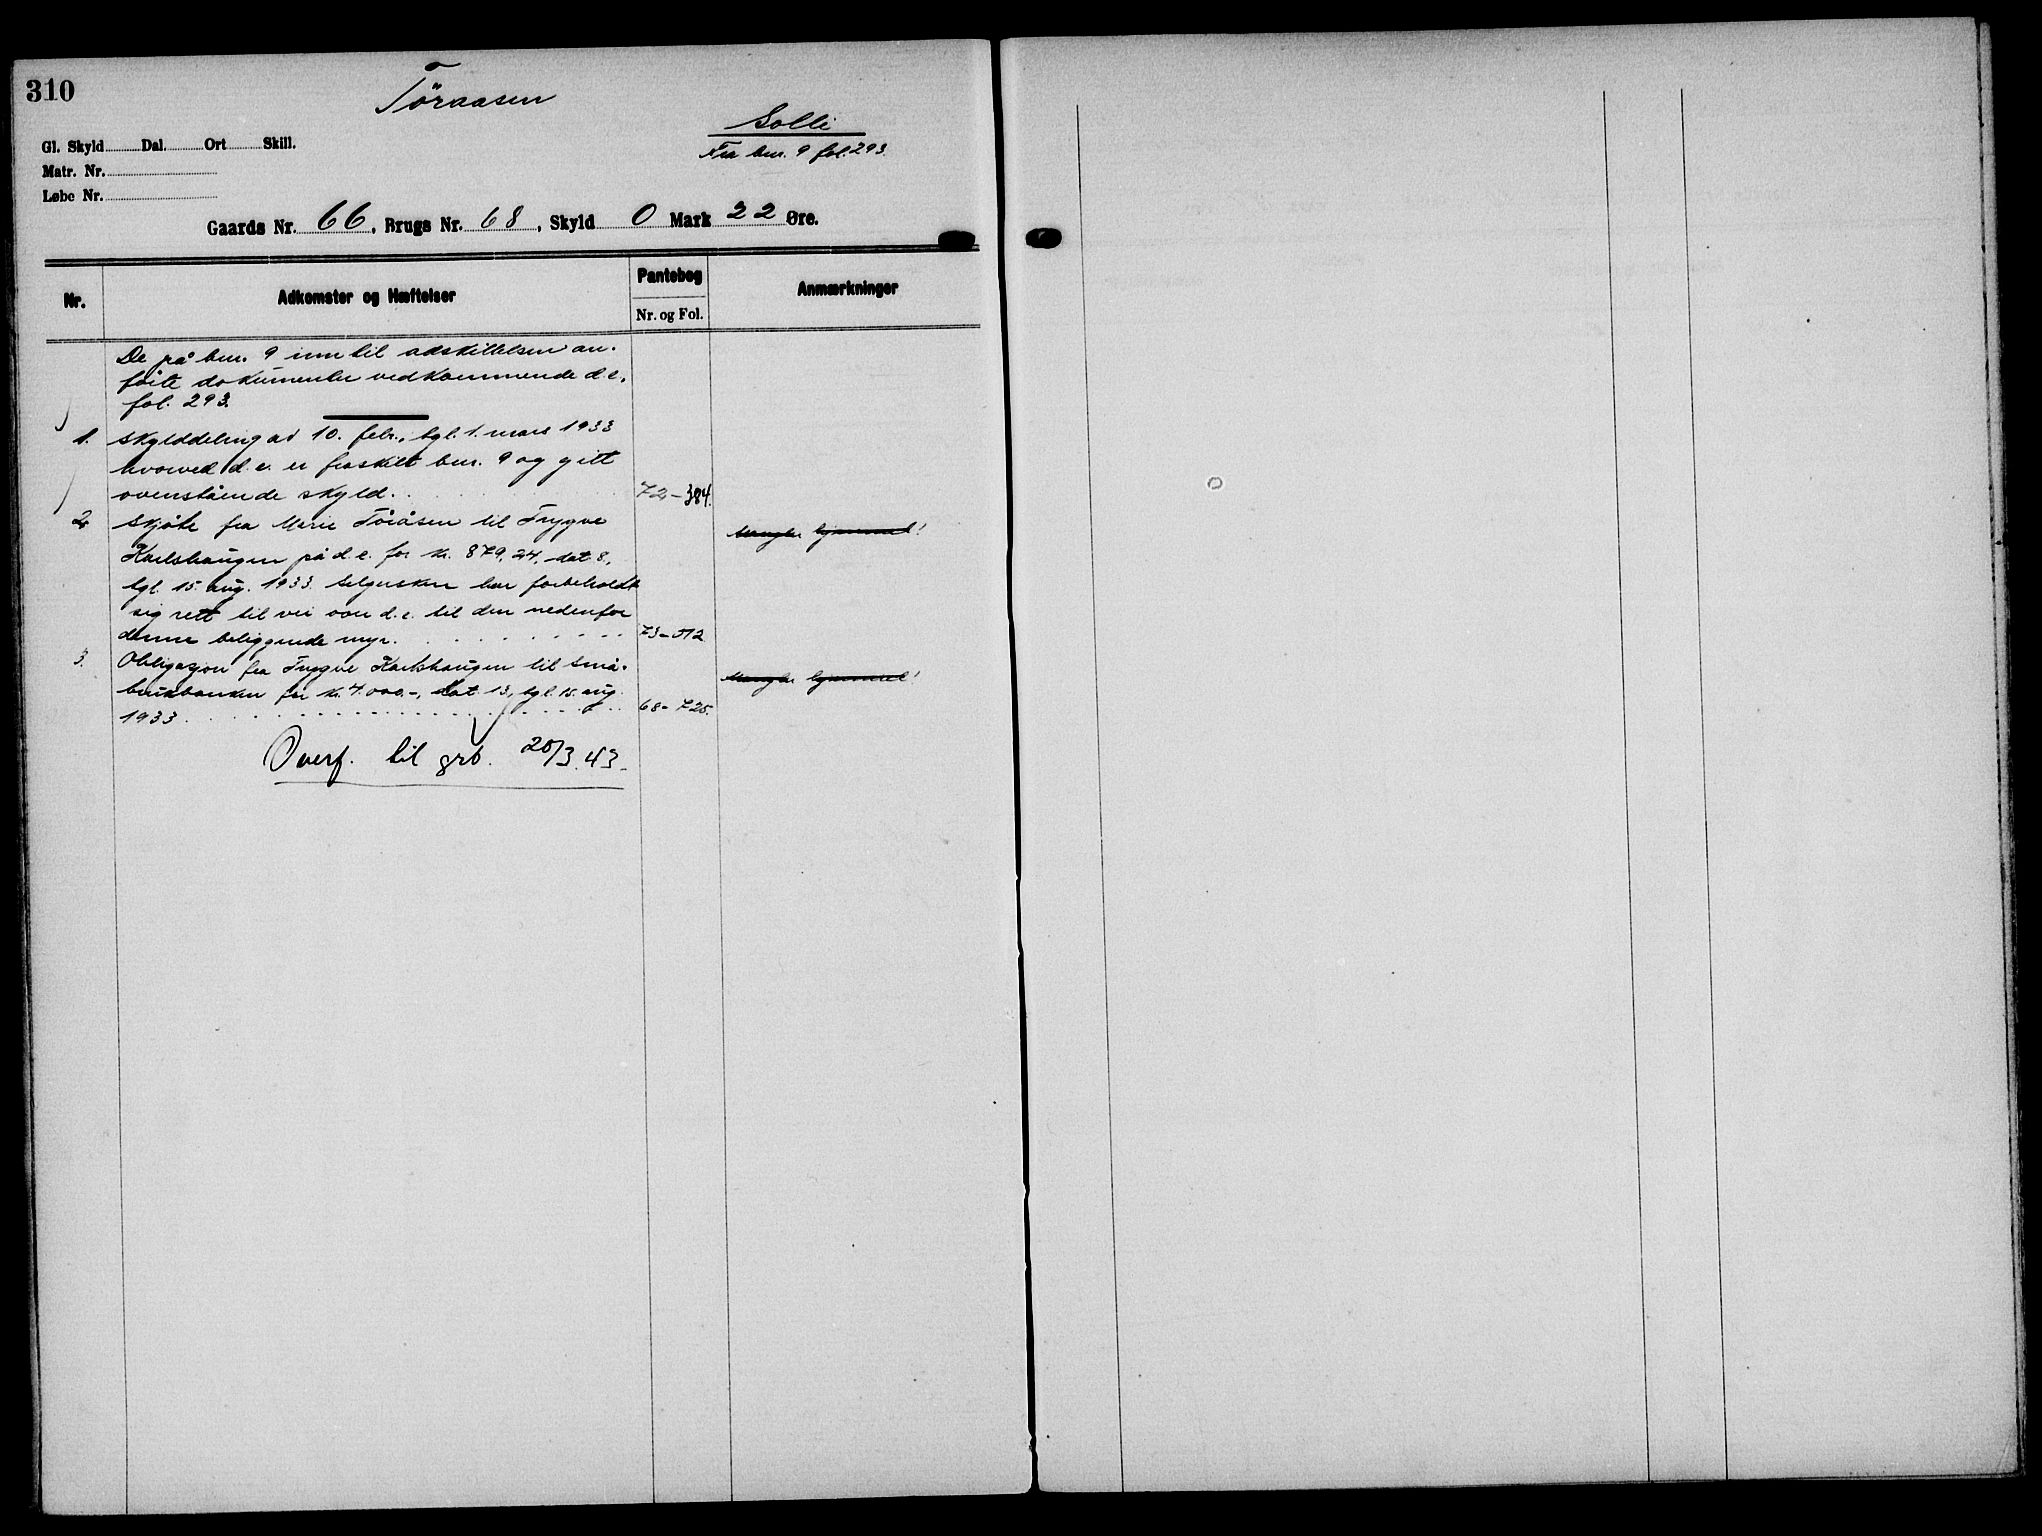 310
Töraasen
Solli
Fra bnr. 9 fol. 293.
Gl. Skyld Dal. Ort Skill.
Matr. Nr.
Løbe Nr.
Gaards Nr. 66, Brugs Nr. 68, Skyld 0 Mark 22 Øre.
Nr. Adkomster og Hæftelser Pantebog Anmærkninger
Nr. og Fol.
De på bnr. 9 inntil adskillelsen an-
førte dokumenter vedkommende d.e.
fol. 293.
1. Skylddeling av 10. febr., tgl. 1. mars 1933
hvorved d.e. er fraskilt bnr. 9 og gitt
ovenstående skyld. 72-384.
2. Skjøte fra Marie Töråsen til Trygve Mangler hjemmel!
Karlshaugen på d.e. for kr. 879,24, dat 8.,
tgl. 15. aug. 1933. Selgersken har forbeholdt
sig rett til vei over d.e. til den nedenfor
denne beliggende myr. 73-512
3. Obligasjon fra Trygve Karlshaugen til Små- Mangler hjemmel!
brukbanken for kr. 4.000.-, dat 13, tgl. 15. aug.
1933. 68-725.
Overf. til grb. 25/3.43.